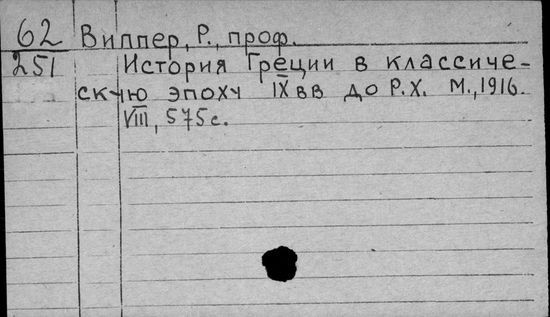 62 Виппер, Р., проф.
251 История Греции в классиче-
скую эпоху IX вв до Р.Х. М., 1916.
VIII, 575 с.